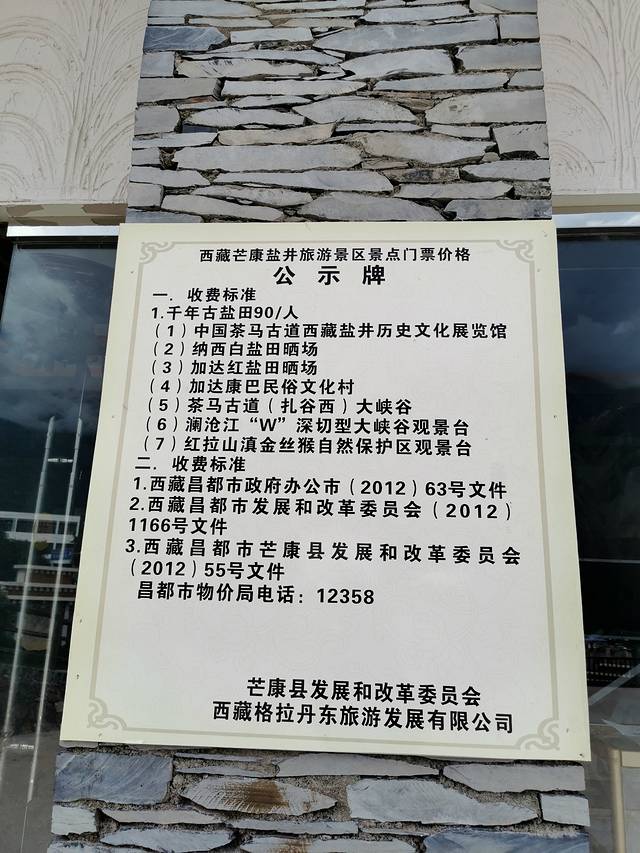 西藏芒康盐井旅游景区景点门票价格
公示牌
一．收费标准
1.千年古盐田90/人
（1）中国茶马古道西藏盐井历史文化展览馆
（2）纳西白盐田晒场
（3）加达红盐田晒场
（4）加达康巴民俗文化村
（5）茶马古道（扎谷西）大峡谷
（6）澜沧江“W”深切型大峡谷观景台
（7）红拉山滇金丝猴自然保护区观景台
二．收费标准
1.西藏昌都市政府办公市（2012）63号文件
2.西藏昌都市发展和改革委员会（2012）
1166号文件
3.西藏昌都市芒康县发展和改革委员会
（2012）55号文件
昌都市物价局电话：12358
芒康县发展和改革委员会
西藏格拉丹东旅游发展有限公司